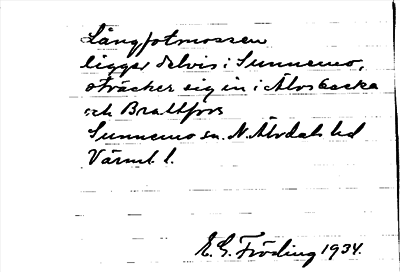 Långfotmossen
ligger delvis i Sunnemo,
sträcker sig in i Älvsbacka
och Brattfors
Sunnemo sn. N. Älvdals hd
Värml. l.
E. G. Fröding 1934.